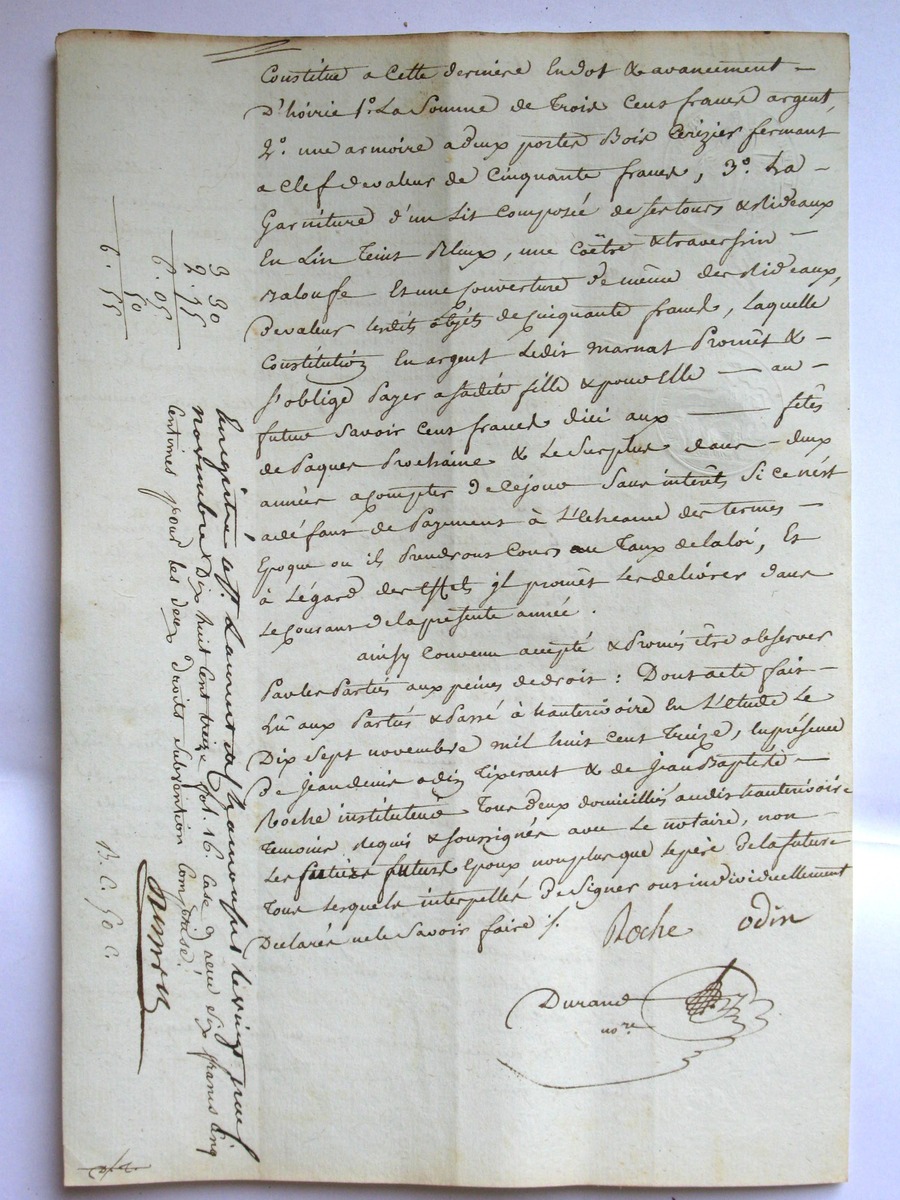 Constitue a Cette derniere En dot & avancement –
D'hoirie 1°. La Somme de Trois Cens francs argent,
2°. une armoire a deux portes Bois Cerizier fermant
a Clef de valeur de Cinquante francs, 3°. La –
Garniture d'un Lit Composée de ses tours & Rideaux
En Lin Teint Bleux, une Coëtre & traversin –
Et une Couverture de même des Rideaux,
de valeur lesdits objets de Cinquante francs, Laquelle
Constitution En argent Ledit marnat Promêt & –
s'oblige Payer a sadite fille & pour Elle — au –
futur Savoir Cens francs d'ici aux —— fêtes
de Paques Prochaine & Le Surplus dans – deux
années a compter de Ce jour Sans intérêts Si ce n'ést
a défaut de Payement à L'Echeance des termes –
Epoque ou ils Prendront Cours au Taux de la loi, Et
à Légard des Effets il promêt les délivrer dans
Le Courant de la présente année.
ainsy Convenu accepté & Promis être observer
Par les Parties aux peines de droit : Dont acte fait –
Lû aux Parties & Passé à hauterivoire En L'étude Le
Dix Sept novembre mil huit Cent Treize, En présence
De Jean denis odin Tixerant & de Jean Baptiste –
Roche instituteur Tous deux domiciliés audit hauterivoire
Temoins requis & soussignés avec Le notaire, non –
Les futurs Epoux non plus que le père De la future
Tous lesquels interpellés De Signer ont individuellement
Déclarés ne le Savoir faire /.
Roche odin
Durand
no.re
3 30
2. 75
6. 05
50
6. 55
Enregistré à St. Laurent de Chamousset le vingt neuf
novembre Dix huit Cent treize fol. 16. Case 9 reçu Six francs Cinq
Centimes pour les deux droits Subvention Comprise.
B. C. 50 C.